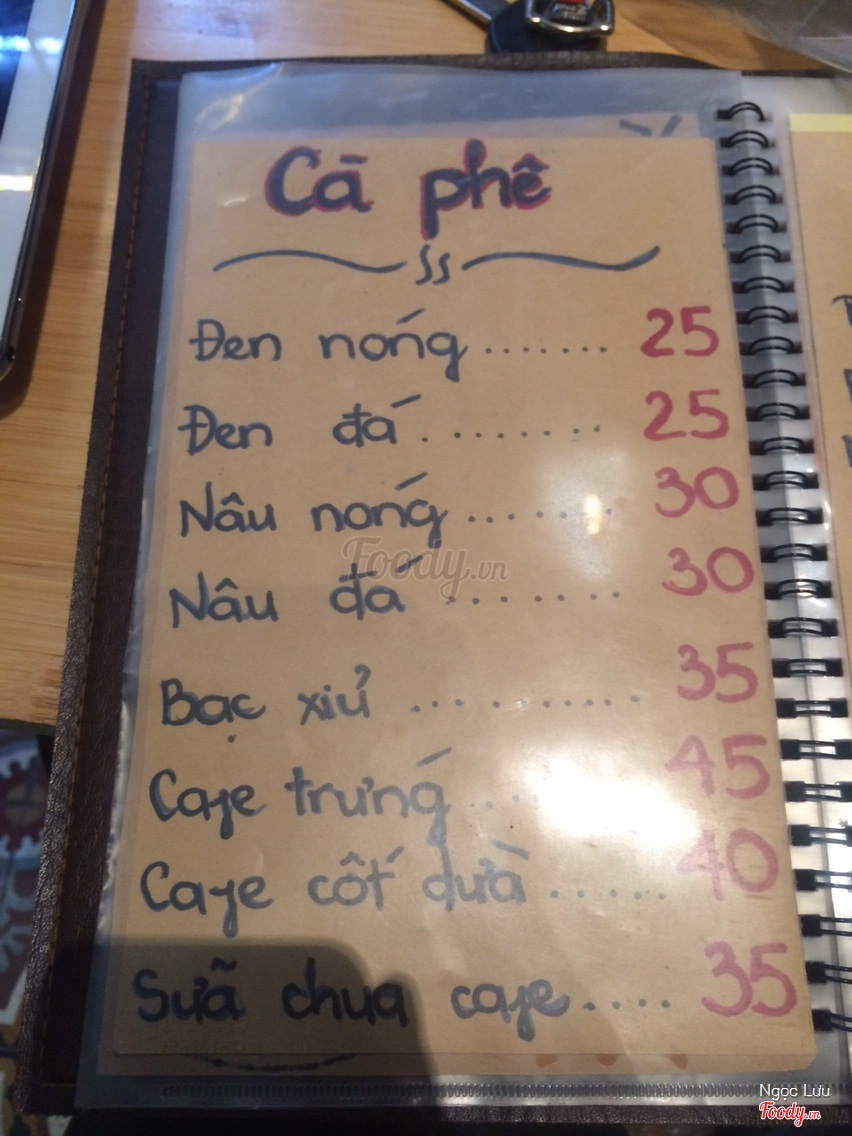 Cà phê
Đen nóng ....... 25
Đen đá ......... 25
Nâu nóng ....... 30
Nâu đá ........ 30
Bạc xỉu .......... 35
Cafe trứng ... 45
Cafe cốt dừa ...... 40
Sữa chua cafe .... 35
Foody.vn
Ngọc Lưu
Foody.vn